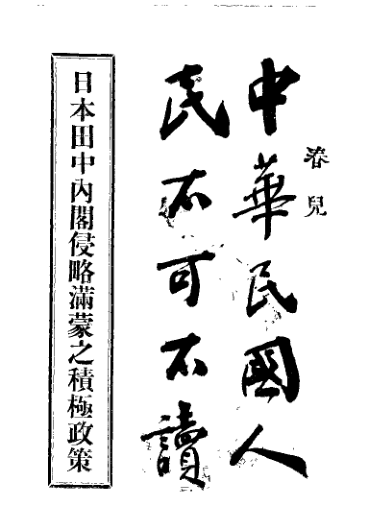 春兒
中華民國人
民不可不讀
日本田中內閣侵略滿蒙之積極政策